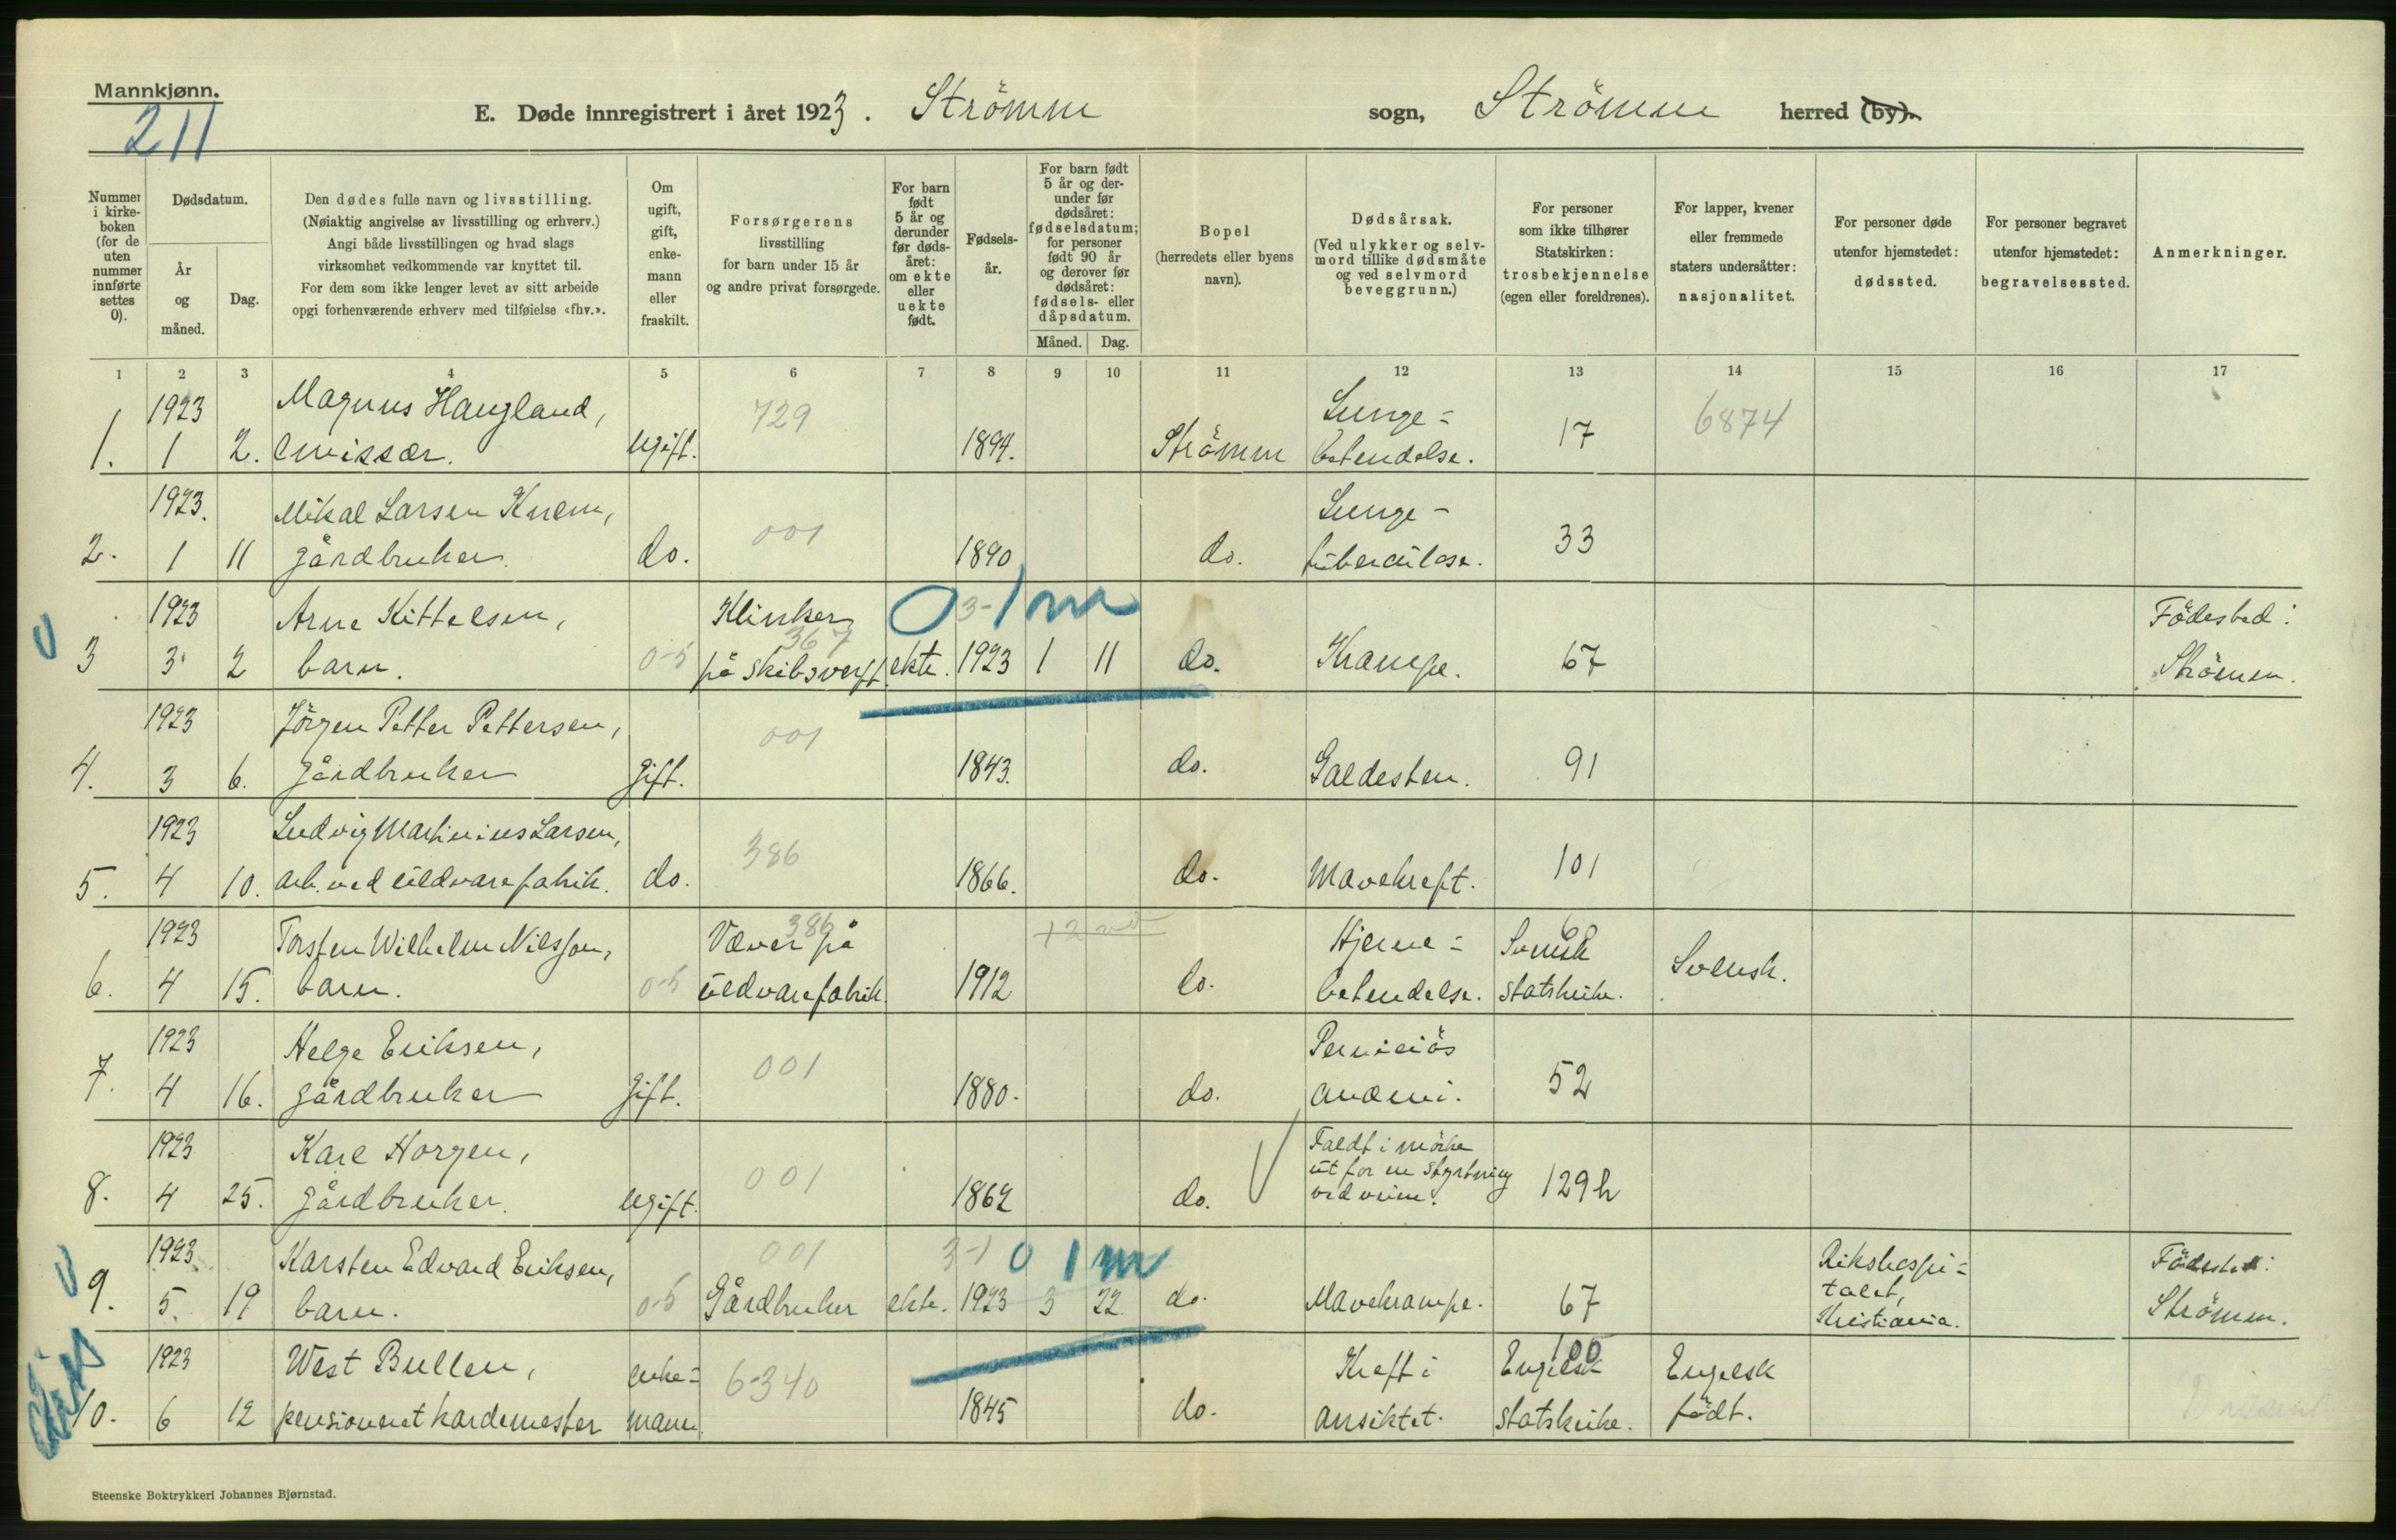 Mannkjønn.
211
E. Døde innregistrert i året 1923. Strömm sogn, Strömm herred (by).
Nummer i kirkeboken (for de uten nummer innførte settes 0).
Dødsdatum.
År og måned.
Dag.
Den dødes fulle navn og livsstilling.
(Nøiaktig angivelse av livsstilling og erhverv.)
Angi både livsstillingen og hvad slags
virksomhet vedkommende var knyttet til.
For dem som ikke lenger levet av sitt arbeide
opgi forhenværende erhverv med tilføielse «fhv.».
Om ugift, gift, enkemann eller fraskilt.
Forsørgerens
livsstilling
for barn under 15 år
og andre privat forsørgede.
For barn født 5 år og derunder før dødsåret: om ekte eller uekte født.
Fødselsår.
For barn født 5 år og derunder før dødsåret: fødselsdatum; for personer født 90 år og derover før dødsåret: fødsels- eller dåpsdatum.
Måned.
Dag.
Bopel
(herredets eller byens
navn).
Dødsårsak.
(Ved ulykker og selvmord tillike dødsmåte og ved selvmord beveggrunn.)
For personer
som ikke tilhører
Statskirken:
trosbekjennelse
(egen eller foreldrenes).
For lapper, kvener
eller fremmede
staters undersåtter:
nasjonalitet.
For personer døde
utenfor hjemstedet:
dødssted.
For personer begravet
utenfor hjemstedet:
begravelsessted.
Anmerkninger.
1 2 3 4 5 6 7 8 9 10 11 12 13 14 15 16 17
1923 Magnus Haugland, 729 Lunge= 17 6874
1. 1 2. emissær. ugift. 1894. Strömm betendelse.
1923. Mikal Larsen Knem, 001 Lunge- 33
2. 1 11 gårdbruker. do. 1890 do. tuberculose.
1923 Arne Kittelsen, Klinker 0 3- 1 m Födested:
3 3 2 barn. 0-5 på skibsverft. 367 ekte. 1923 1 11 do. Krampe. 67 Strömm.
1923 Jörgen Petter Pettersen, 001
4. 3 6. gårdbruker gift. 1843. do. Galdesten. 91
1923 Ludvig Martinius Larsen, 386
5. 4 10. arb. ved uldvarefabrik. do. 1866. do. Mavekreft. 101
1923 Torsten Wilhelm Nilsson, Væver på 386 Hjerne= Svensk Svensk.
6. 4 15. barn. 0-5 uldvarefabrik. 1912 do. betendelse. statskirke.
1923 Helge Eriksen, 001 Perniciös 52
7. 4 16. gårdbruker gift. 1880. do. anæmi.
1923 Karl Horgen, 001 Faldt i mörke
ut for en styrtning
8. 4 25. gårdbruker. ugift. 1862 do. ved veien. 129h
1923 Karsten Edvard Eriksen, 001 3-1 0 1 m Rikshospi= Födested:
9. 5. 19 barn. 0-5 Gårdbruker ekte. 1923 3 22. do. Mavekrampe. 67 talet, Kristiania. Strömm.
1923 West Bullen, enke= 6-340 Kreft i 105 Engelsk Engelsk
10. 6 12 pensioneret kardemester mann. 1845 do. ansiktet. statskirke. födt.
Steenske Boktrykkeri Johannes Bjørnstad.